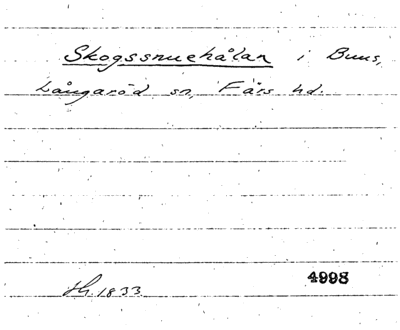 Skogssnuehålan i Buus,
Långaröd sn, Färs hd.
4998
1833